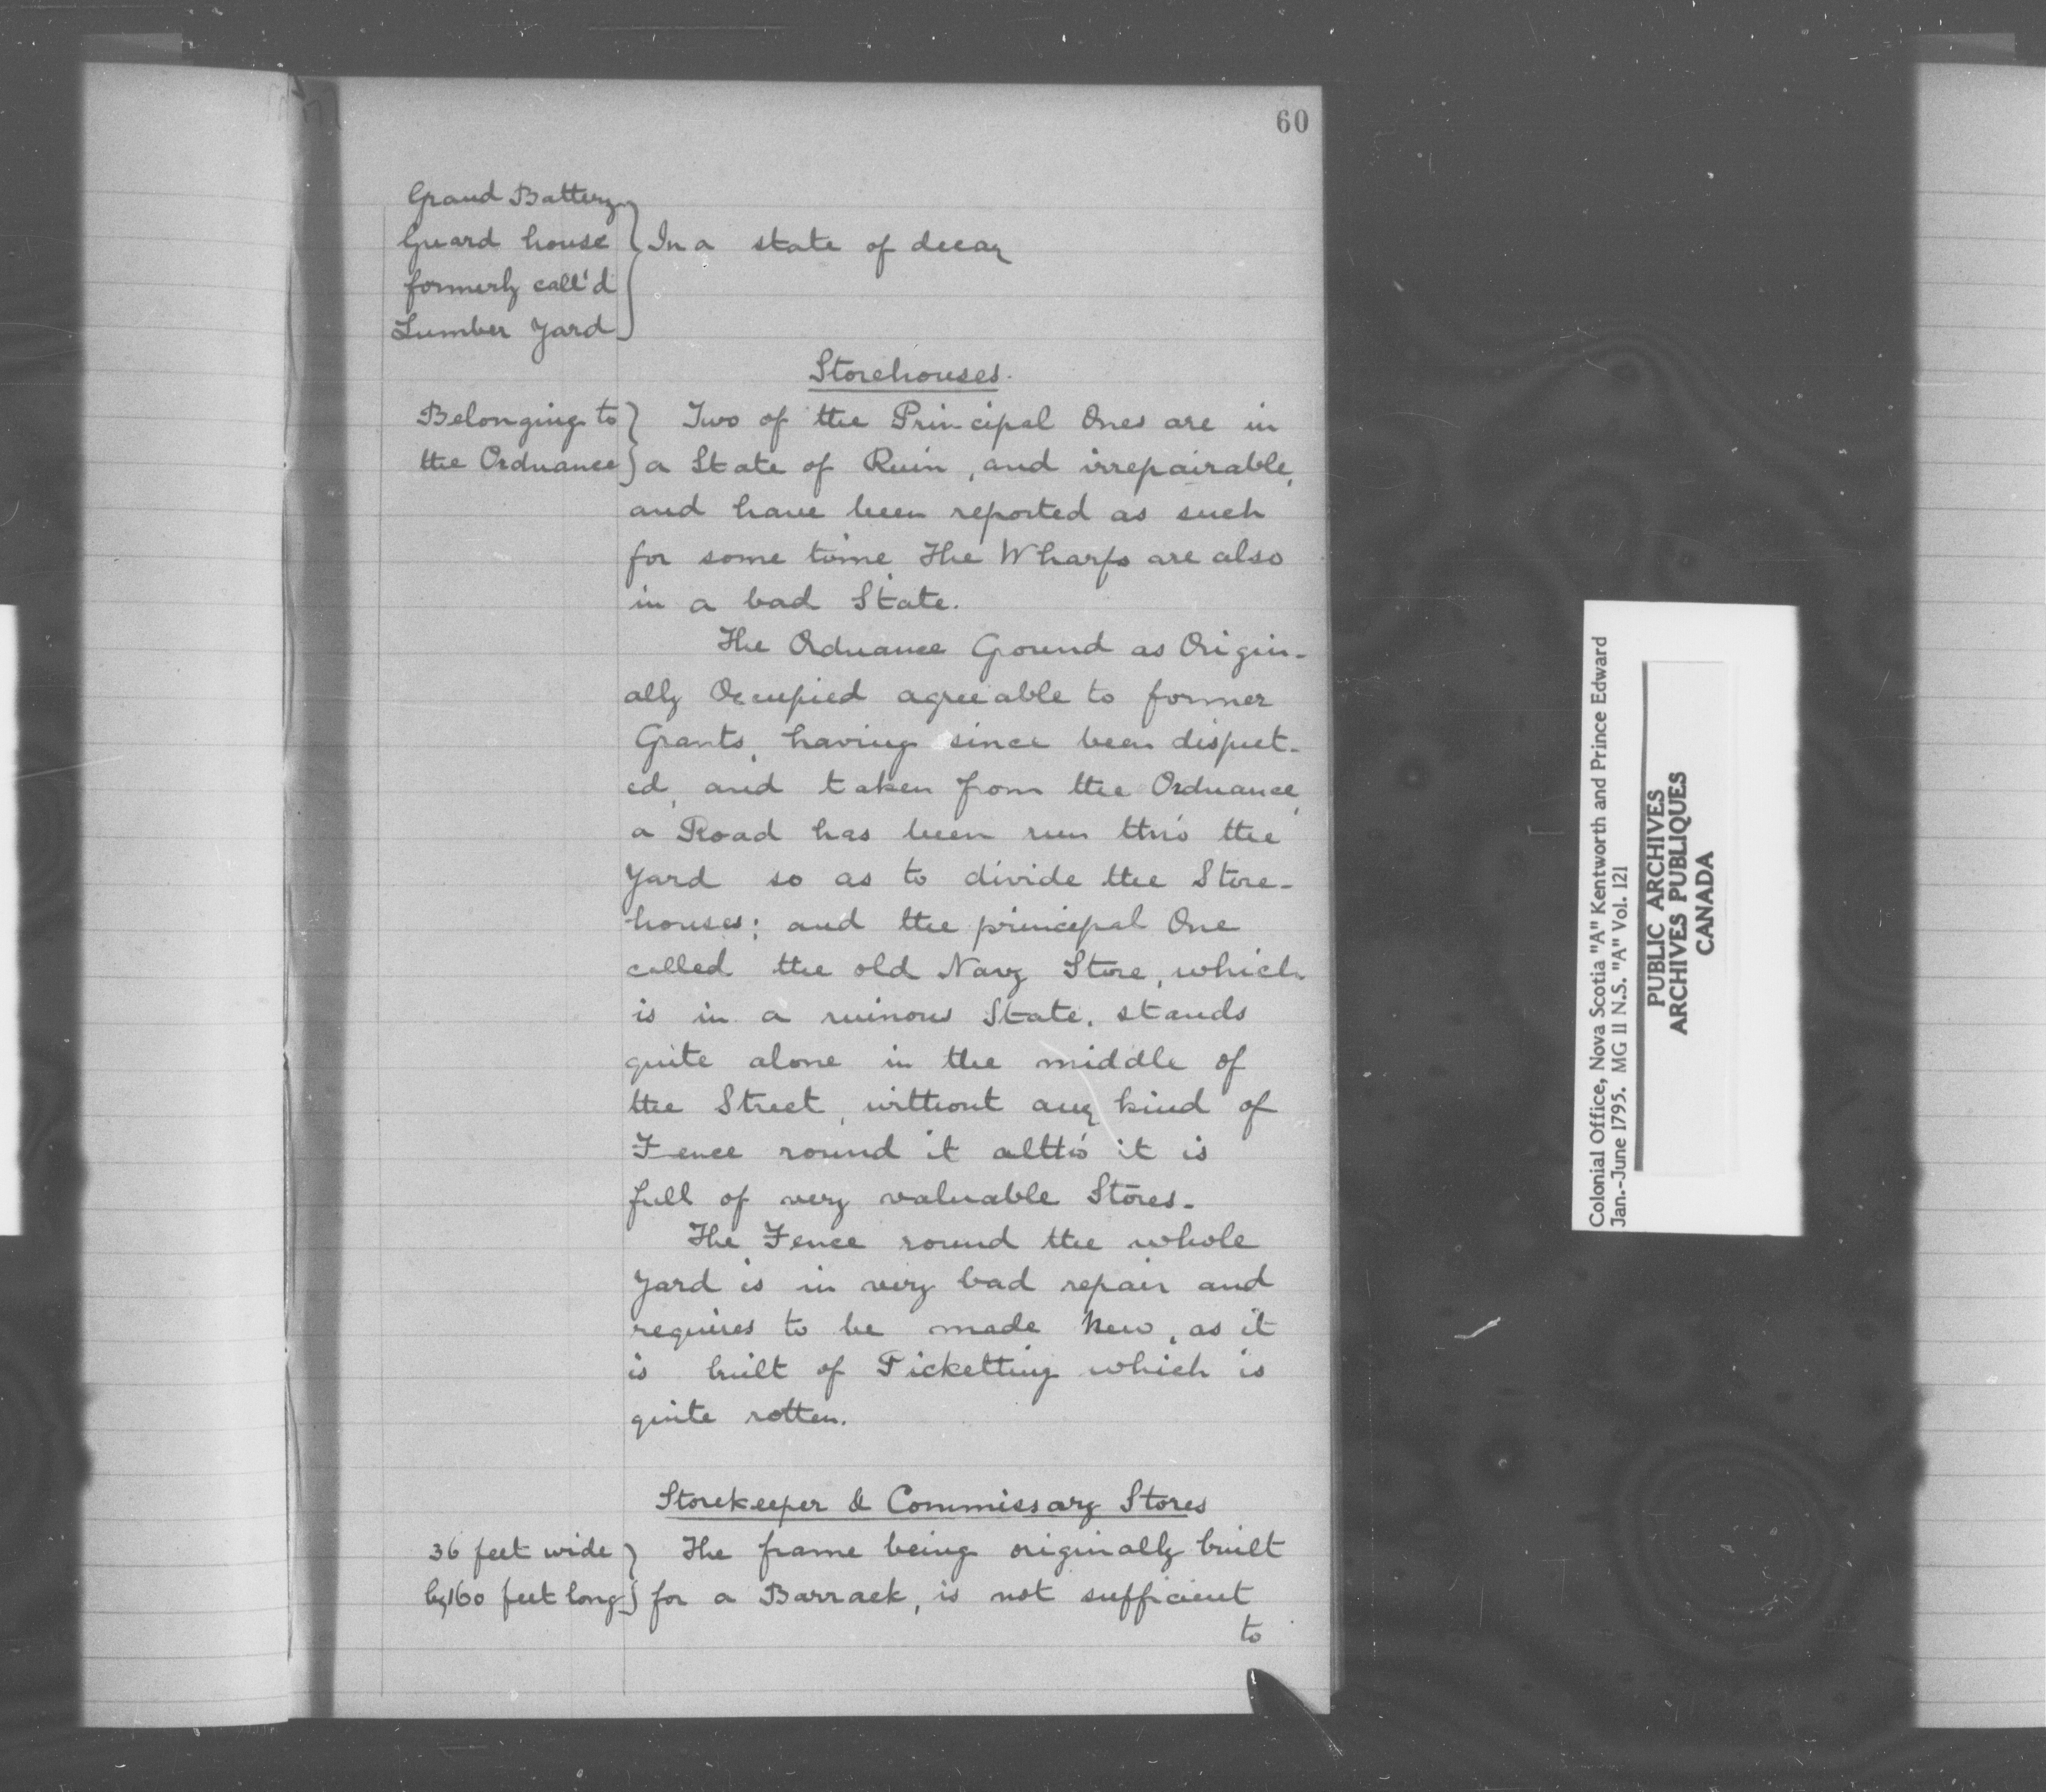 60
Grand Battery
Guard house
formerly call'd
Lumber Yard
In a state of decay
Storehouses.
Belonging to
the Ordnance
Two of the Principal Ones are in
a State of Ruin, and irrepairable,
and have been reported as such
for some time. The Wharfs are also
in a bad State.
The Ordnance Ground as Origin-
ally Occupied agreeable to former
Grants, having since been disput-
ed, and taken from the Ordnance,
a Road has been run thro' the
Yard so as to divide the Store-
houses; and the principal One
called the old Navy Store, which
is in a ruinous State, stands
quite alone in the middle of
the Street, without any kind of
Fence round it altho' it is
full of very valuable Stores.
The Fence round the whole
Yard is in very bad repair and
requires to be made New, as it
is built of Picketting which is
quite rotten.
Storekeeper & Commissary Stores
36 feet wide
by 160 feet long
The frame being originally built
for a Barrack, is not sufficient
to
Colonial Office, Nova Scotia "A" Kentworth and Prince Edward
Jan.-June 1795. MG 11 N.S. "A" Vol. 121
PUBLIC ARCHIVES
ARCHIVES PUBLIQUES
CANADA